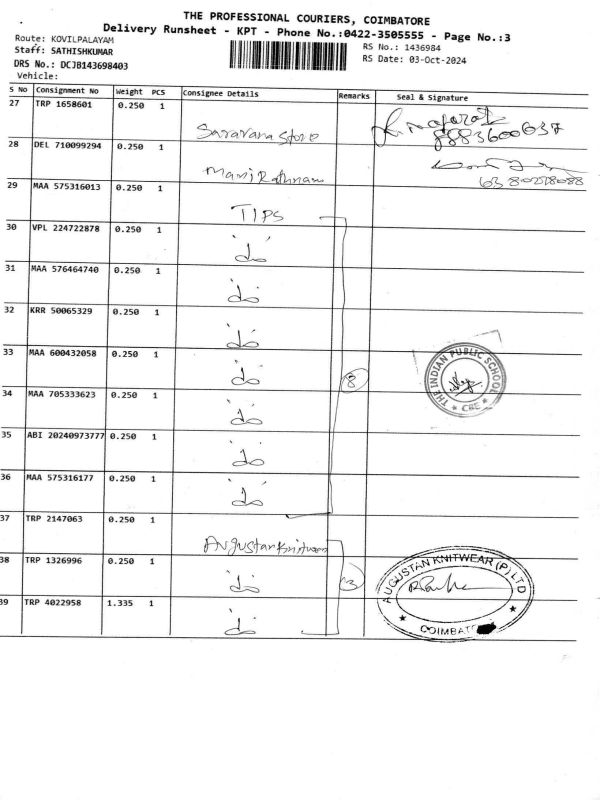 THE PROFESSIONAL COURIERS, COIMBATORE
Delivery Runsheet - KPT - Phone No.:0422-3505555 - Page No.:3
Route: KOVILPALAYAM
RS No.: 1436984
Staff: SATHISHKUMAR
RS Date: 03-Oct-2024
DRS No.: DCJB143698403
Vehicle:
S No Consignment No Weight PCS Consignee Details Remarks Seal & Signature
27 TRP 1658601 0.250 1 Saravana Store 8883600637
28 DEL 710099294 0.250 1 Mani Rathnam
29 MAA 575316013 0.250 1 TIPS
30 VPL 224722878 0.250 1 do
31 MAA 576464740 0.250 1 do
32 KRR 50065329 0.250 1 do
33 MAA 600432058 0.250 1 do 8
THE INDIAN PUBLIC SCHOOL
CBE
34 MAA 705333623 0.250 1 do
35 ABI 20240973777 0.250 1 do
36 MAA 575316177 0.250 1 do
37 TRP 2147063 0.250 1 Augustan Knitwear
38 TRP 1326996 0.250 1 do 3
AUGUSTAN KNITWEAR (P) LTD
39 TRP 4022958 1.335 1 do